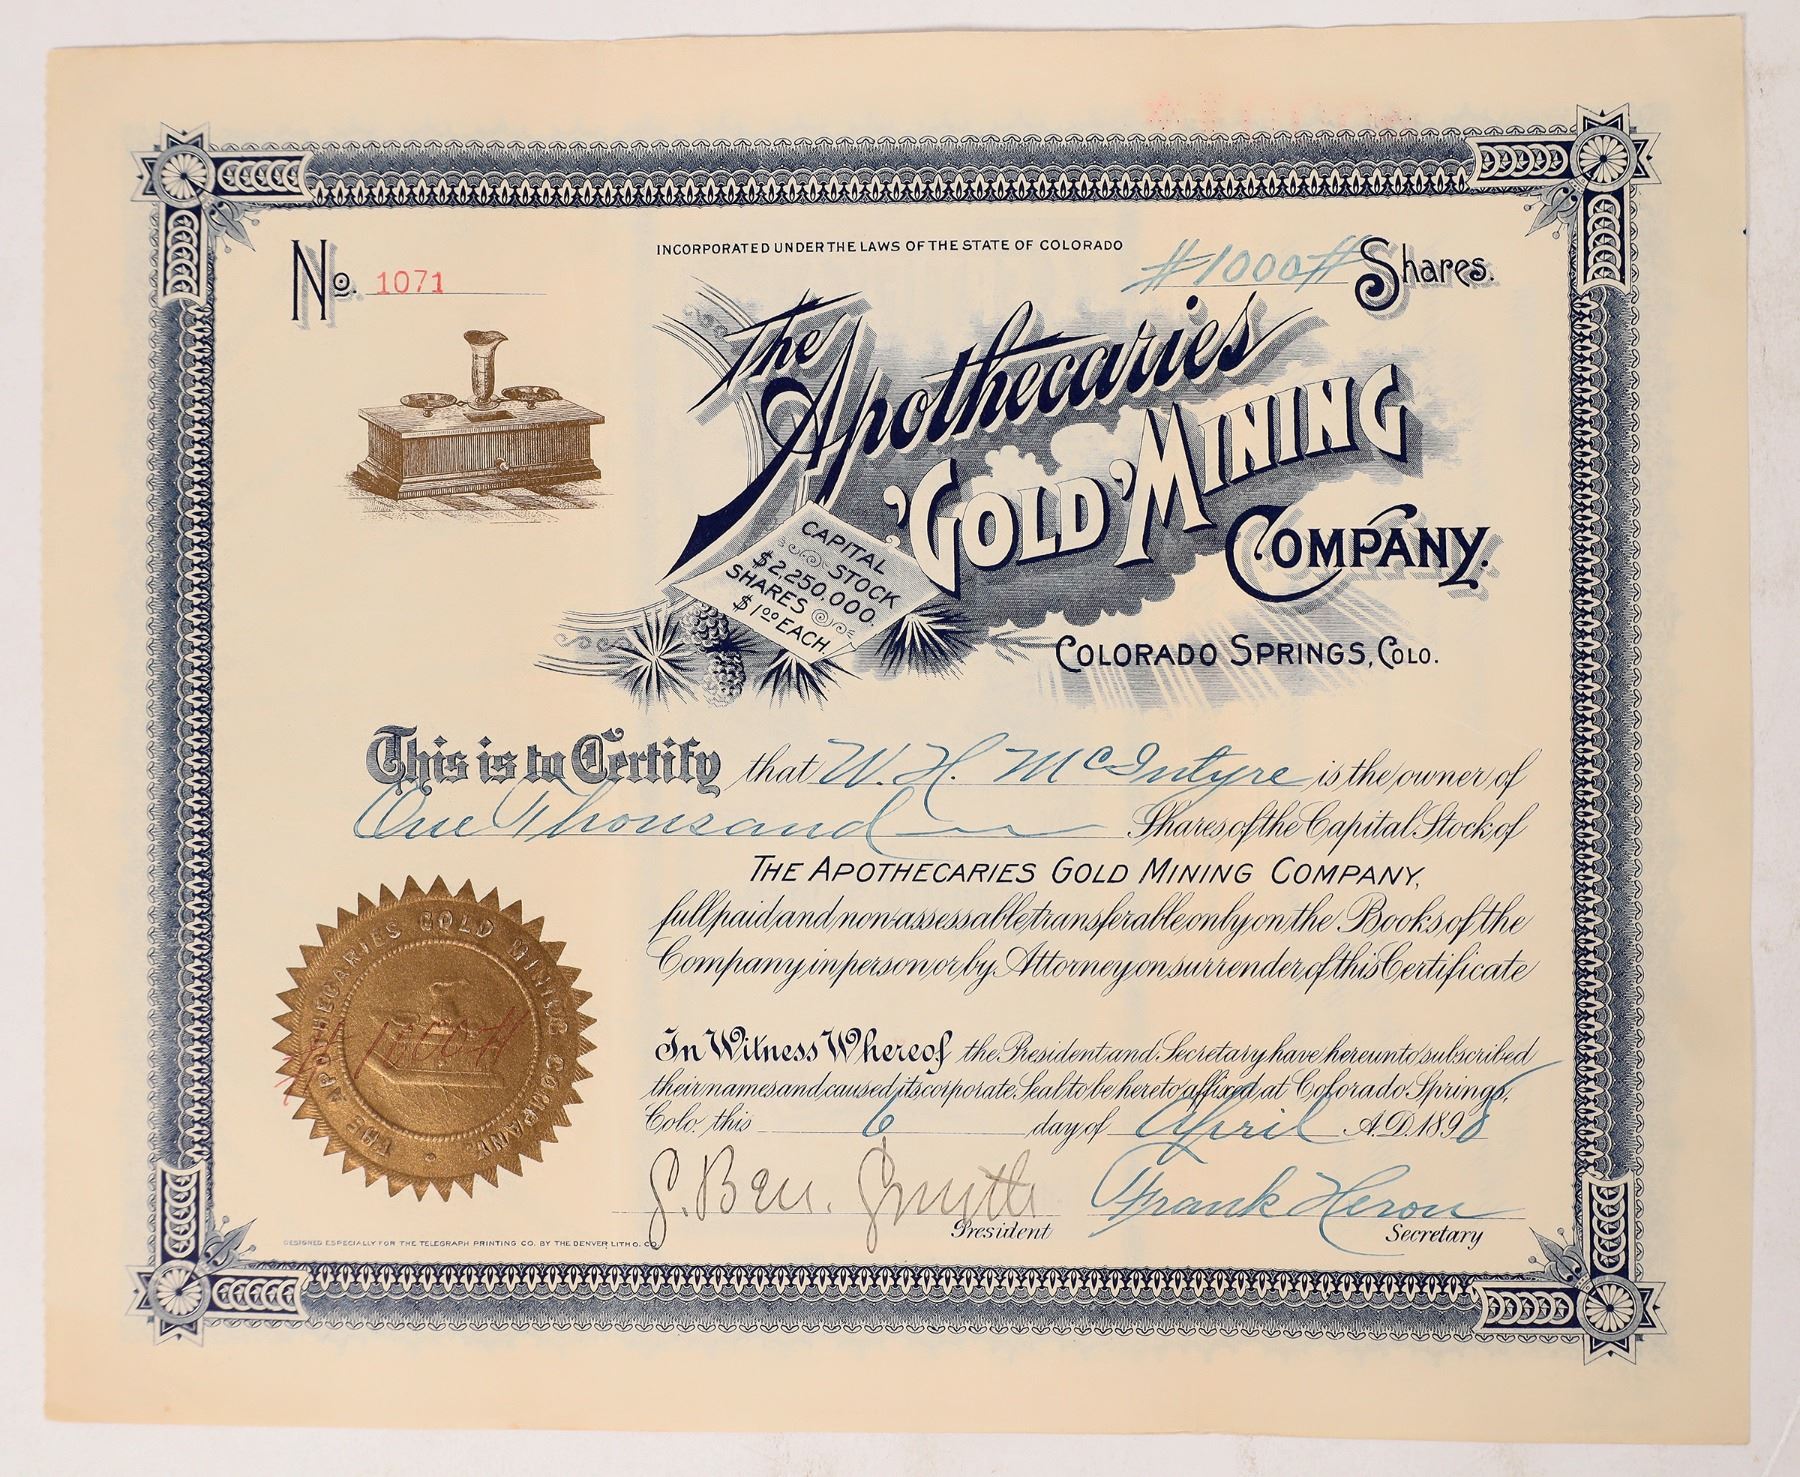 INCORPORATED UNDER THE LAWS OF THE STATE OF COLORADO
No. 1071
#1000# Shares.
The Apothecaries
Gold Mining
Company.
CAPITAL
STOCK
$2,250,000.
SHARES
$1.00 EACH.
Colorado Springs, Colo.
This is to Certify that W. H. McIntyre is the owner of
One Thousand Shares of the Capital Stock of
The Apothecaries Gold Mining Company,
full paid and non-assessable transferable only on the Books of the
Company in person or by Attorney on surrender of this Certificate
In Witness Whereof the President and Secretary have hereunto subscribed
their names and caused its corporate Seal to be hereto affixed at Colorado Springs,
Colo. this 6 day of April A.D. 1898
THE APOTHECARIES GOLD MINING COMPANY
#1000#
S. Ben. Smythe
President
Frank Heron
Secretary
DESIGNED ESPECIALLY FOR THE TELEGRAPH PRINTING CO. BY THE DENVER LITHO. CO